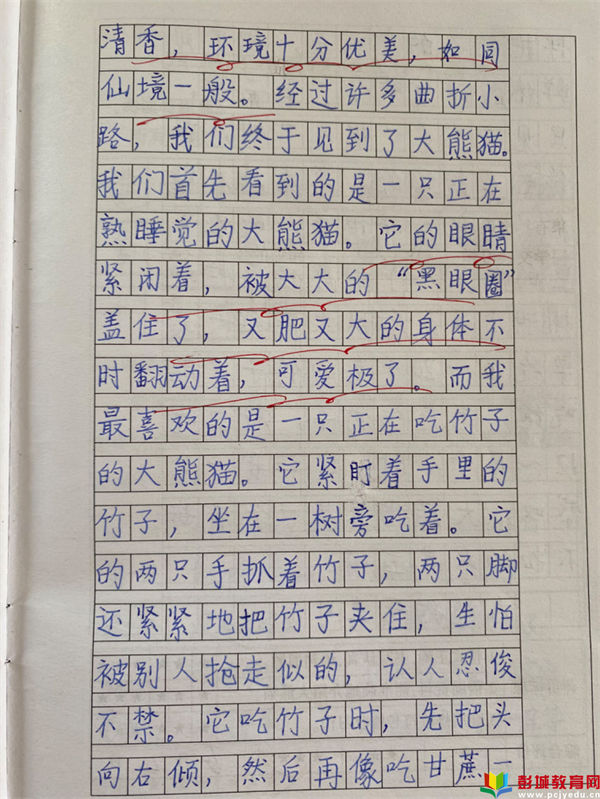 清香，环境十分优美，如同
仙境一般。经过许多曲折小
路，我们终于见到了大熊猫。
我们首先看到的是一只正在
熟睡觉的大熊猫。它的眼睛
紧闭着，被大大的“黑眼圈”
盖住了，又肥又大的身体不
时翻动着，可爱极了。而我
最喜欢的是一只正在吃竹子
的大熊猫。它紧盯着手里的
竹子，坐在一树旁吃着。它
的两只手抓着竹子，两只脚
还紧紧地把竹子夹住，生怕
被别人抢走似的，认人忍俊
不禁。它吃竹子时，先把头
向右倾，然后再像吃甘蔗一
彭城教育网
www.pcjyedu.cn